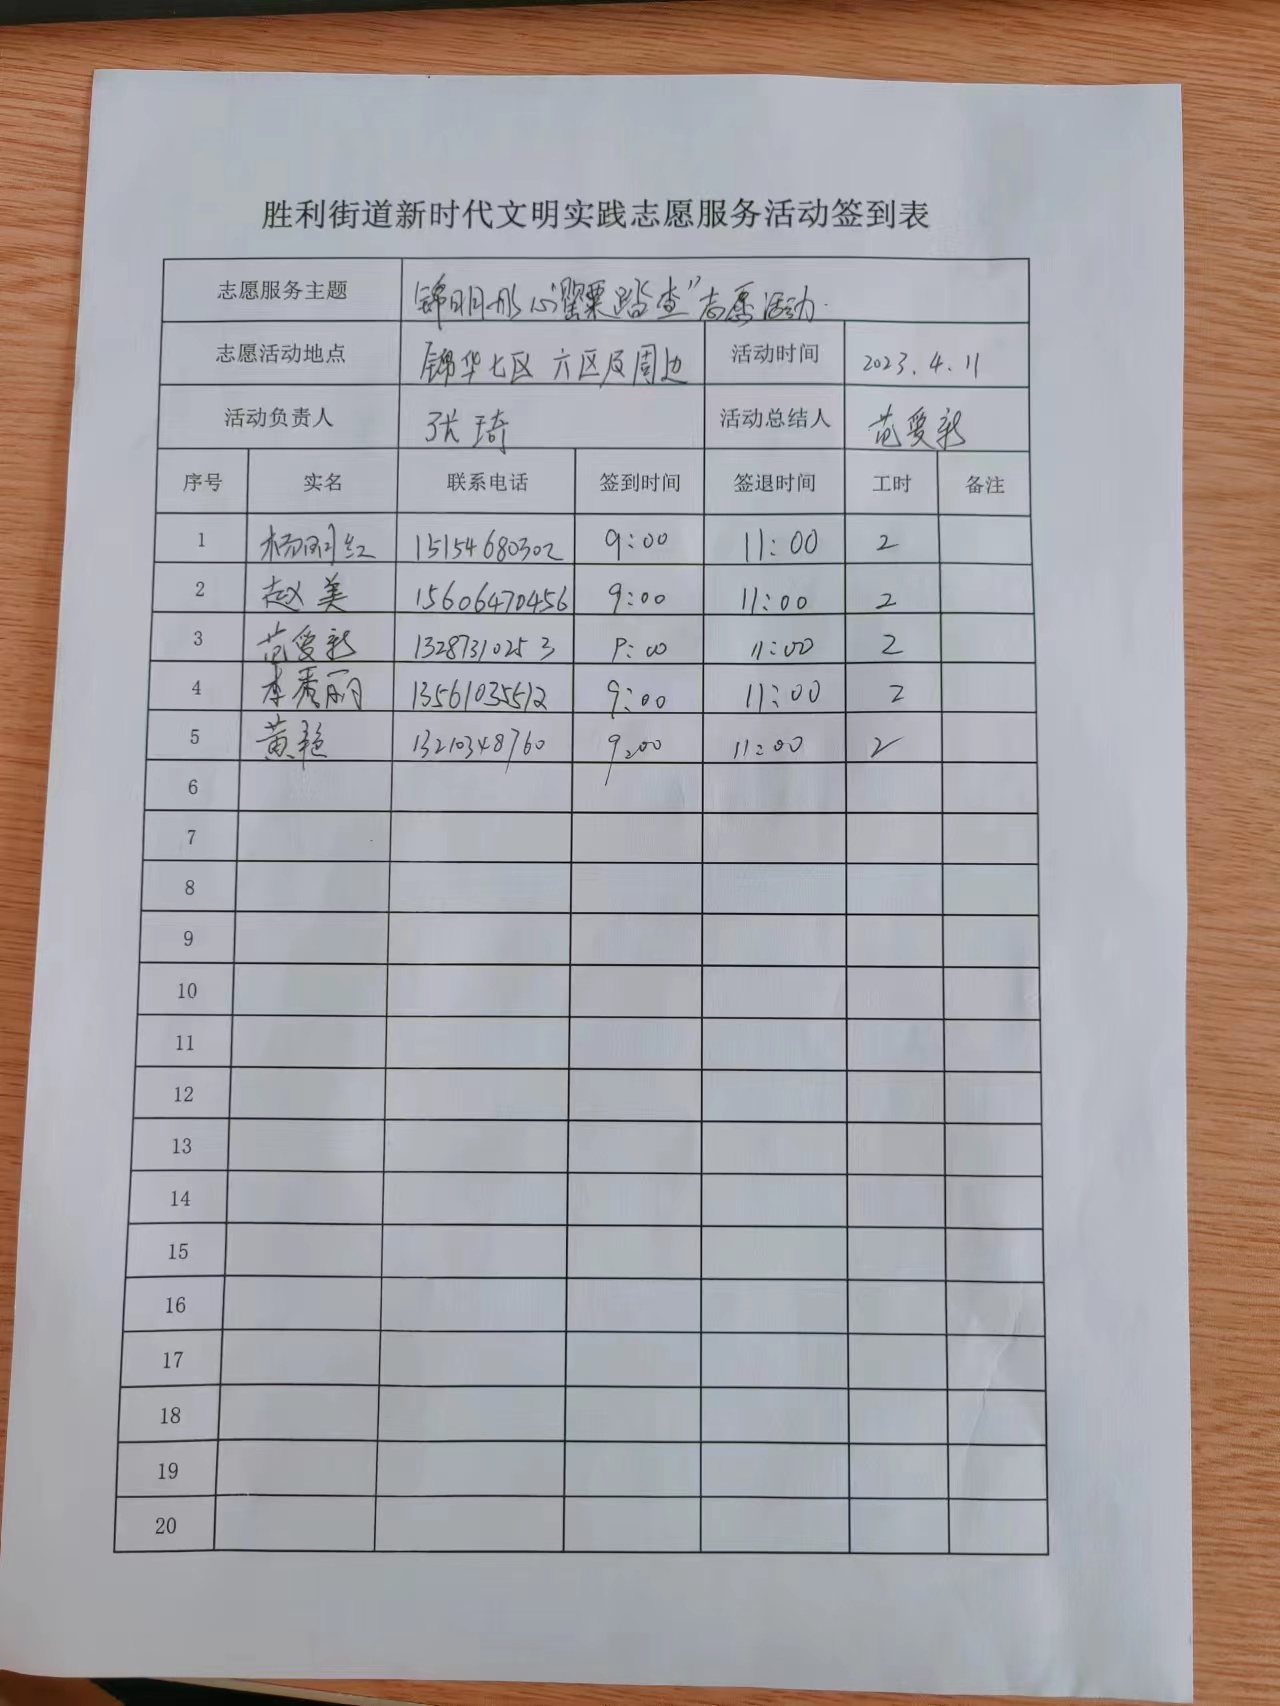 胜利街道新时代文明实践志愿服务活动签到表
志愿服务主题 锦明彤心"罂粟踏查"志愿活动.
志愿活动地点 锦华七区 六区及周边 活动时间 2023.4.11
活动负责人 张琦 活动总结人 范爱新
序号 实名 联系电话 签到时间 签退时间 工时 备注
1 杨丽红 15154680302 9:00 11:00 2
2 赵美 15606470456 9:00 11:00 2
3 范爱新 13287310253 9:00 11:00 2
4 李秀丽 13561035512 9:00 11:00 2
5 黄艳 13210348760 9:00 11:00 2
6
7
8
9
10
11
12
13
14
15
16
17
18
19
20